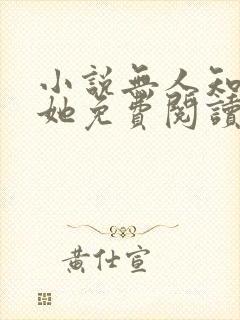 小說無人知
她免費閱讀
黃仕宣